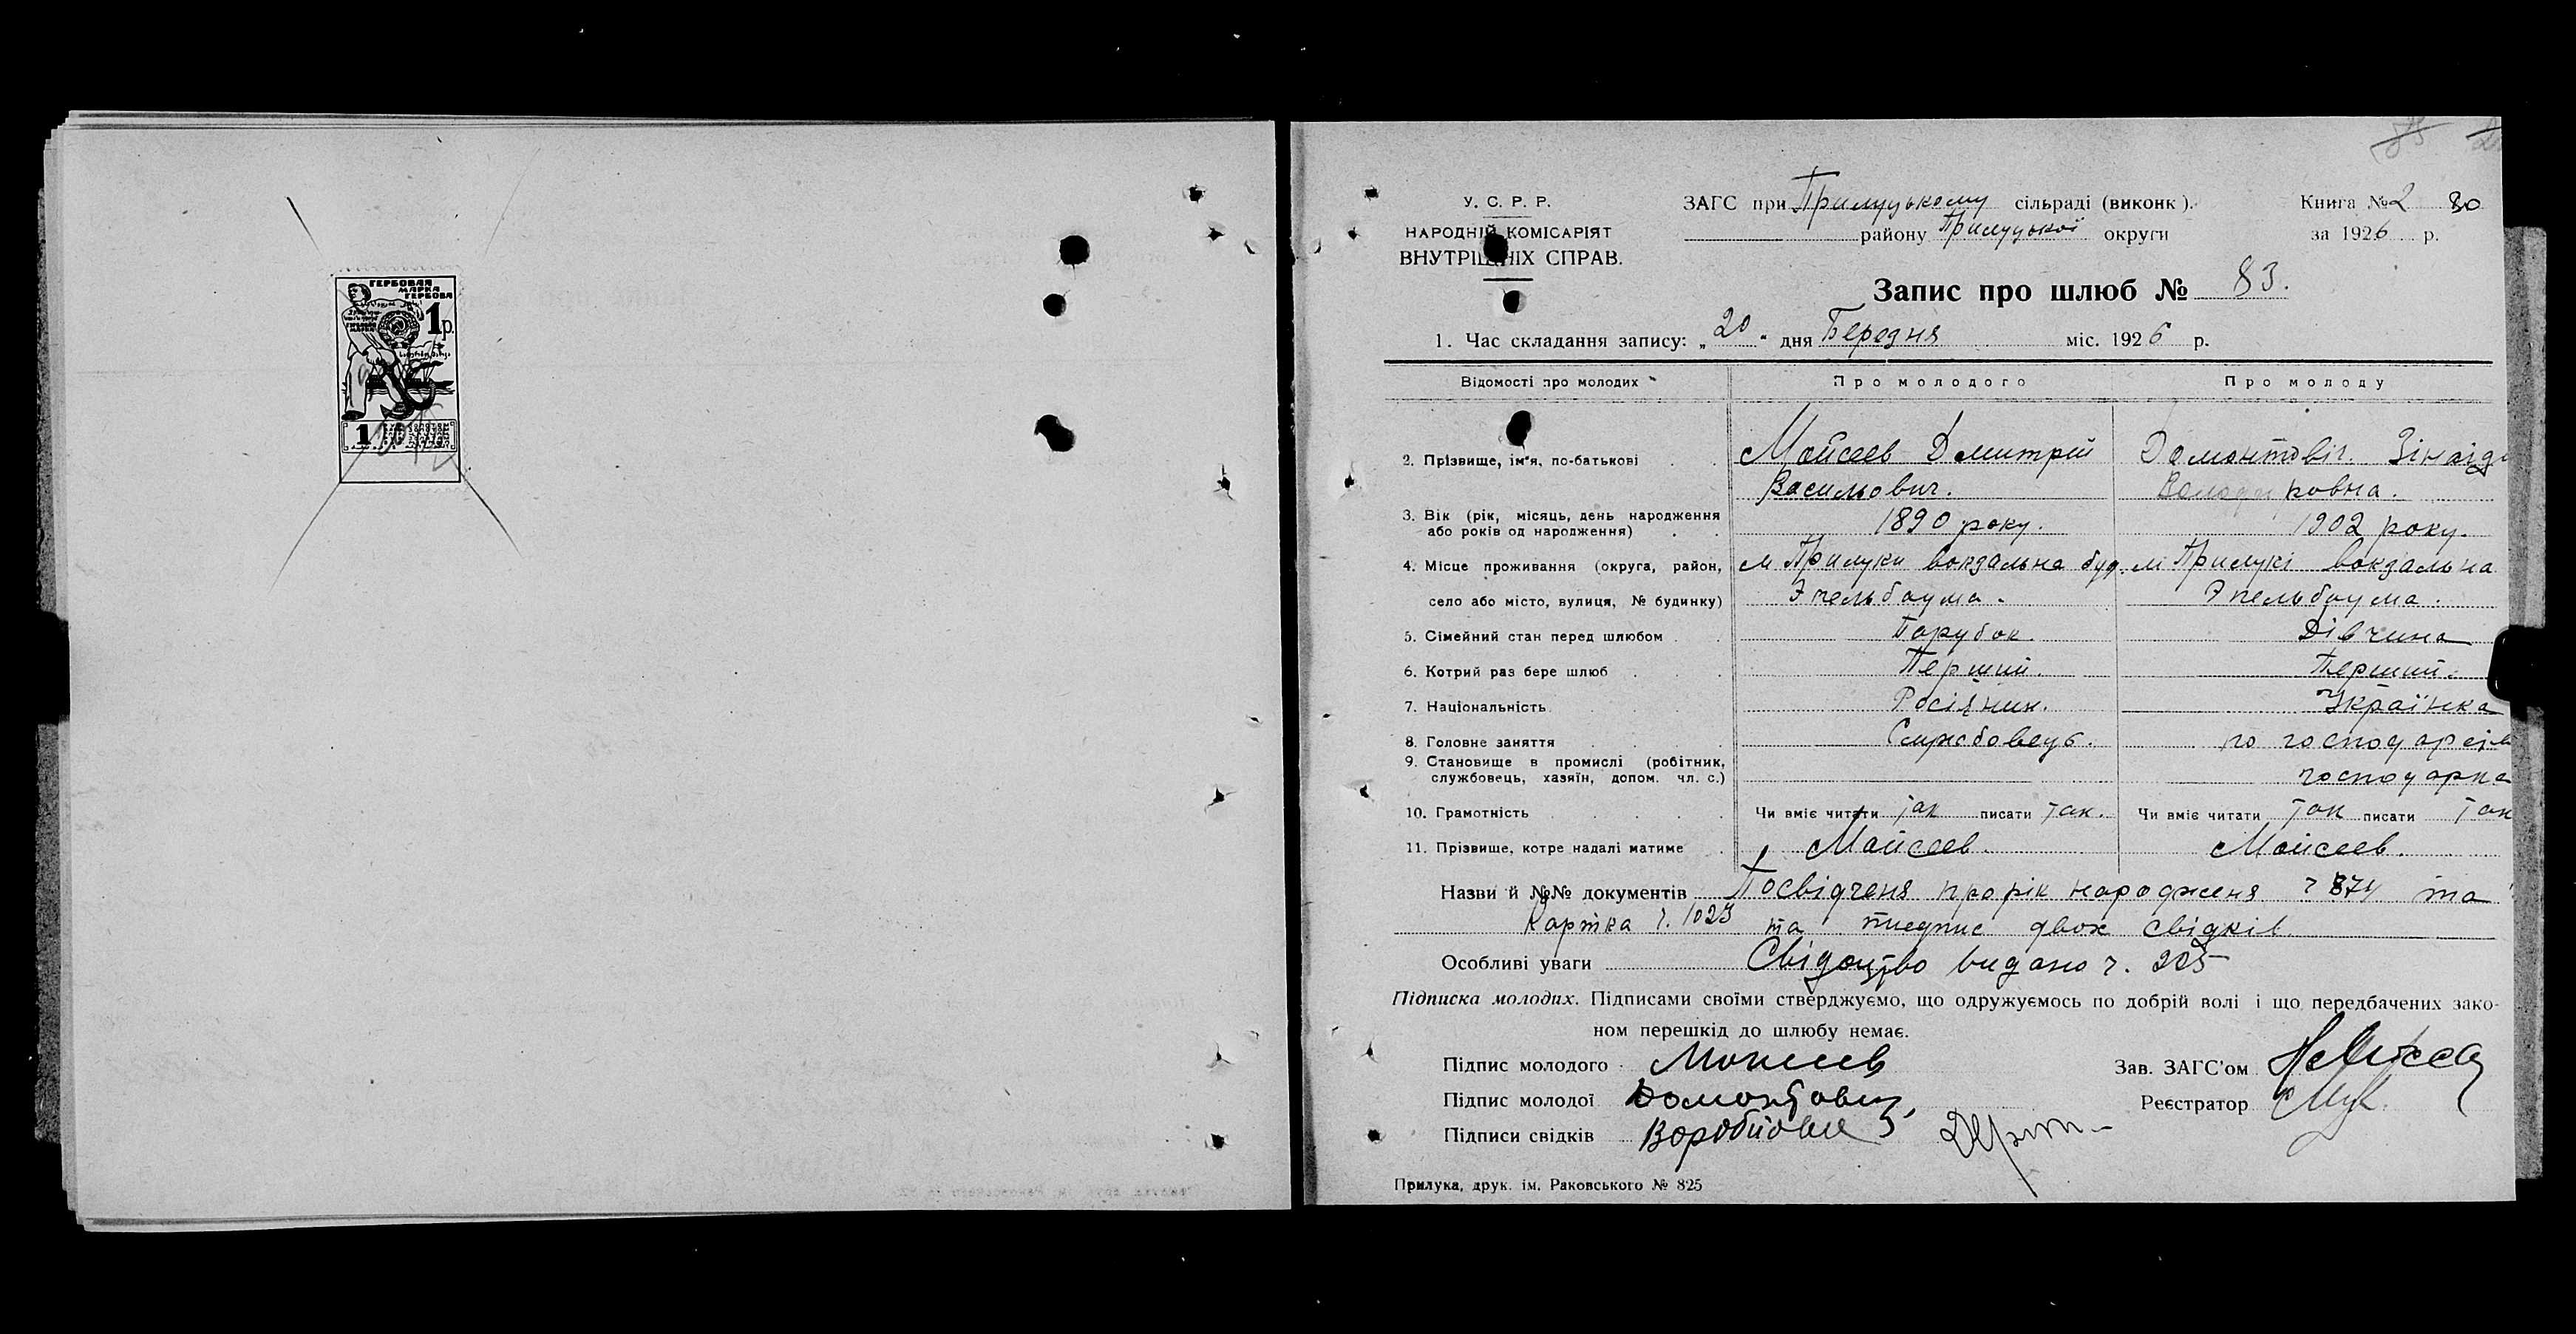 ГЕРБОВАЯ
МАРКА
ГЕРБОВА
1р.
1
У. С. Р. Р.
НАРОДНІЙ КОМІСАРІЯТ
ВНУТРІШНІХ СПРАВ.
ЗАГС при Прилуцькому сільраді (виконк).
району Прилуцької округи
Книга № 2 80
за 1926 р.
Запис про шлюб № 83.
1. Час складання запису: „20" дня Березня міс. 1926 р.
Відомості про молодих Про молодого Про молоду
2. Прізвище, ім'я, по-батькові Мойсеев Дмитрий Домонтовіч. Зінаїда
Васильович. Володировна.
3. Вік (рік, місяць, день народження
або років од народження) 1890 року. 1902 року.
4. Місце проживання (округа, район, м Прилуки вокзальна буд. м Прилукі вокзальна
село або місто, вулиця, № будинку) Эпельбаума. Эпельбаума.
5. Сімейний стан перед шлюбом Парубок. Дівчина
6. Котрий раз бере шлюб Перший. Перший.
7. Національність Росіянин. Українка
8. Головне заняття Службовець. по господарсів
9. Становище в промислі (робітник,
службовець, хазяїн, допом. чл. с.) господарка
10. Грамотність Чи вміє читати так писати так. Чи вміє читати так писати так
11. Прізвище, котре надалі матиме Мойсеев. Мойсеев.
Назви й №№ документів Посвідченя про рік народженя ч 874 та
Картка ч. 1023 та підпис двох свідків
Особливі уваги Свідоцтво видано ч. 205
Підписка молодих. Підписами своїми стверджуємо, що одружуємось по добрій волі і що передбачених зако-
ном перешкід до шлюбу немає.
Підпис молодого Моисеев
Зав. ЗАГС'ом
Підпис молодої Домонтович
Реєстратор
Підписи свідків
Прилука, друк. ім. Раковського № 825